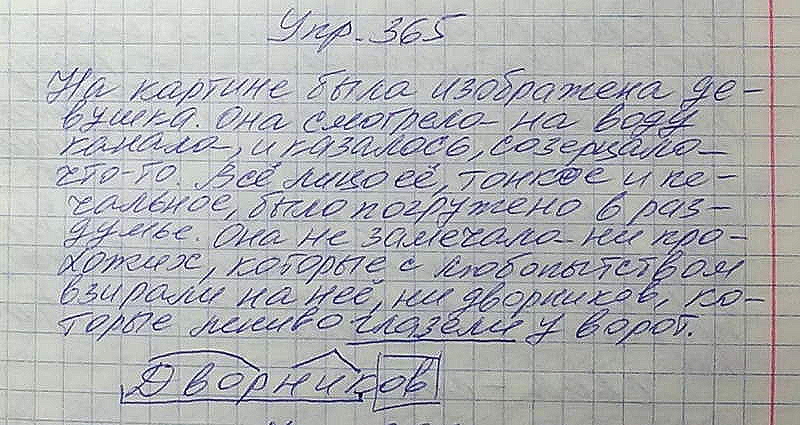 Упр. 365
На картине была изображена де-
вушка. Она смотрела на воду
канала, и казалось, созерцала
что-то. Всё лицо её, тонкое и пе-
чальное, было погружено в раз-
думье. Она не замечала ни про-
хожих, которые с любопытством
взирали на неё, ни дворников, ко-
торые лениво глазели у ворот.
Дворников